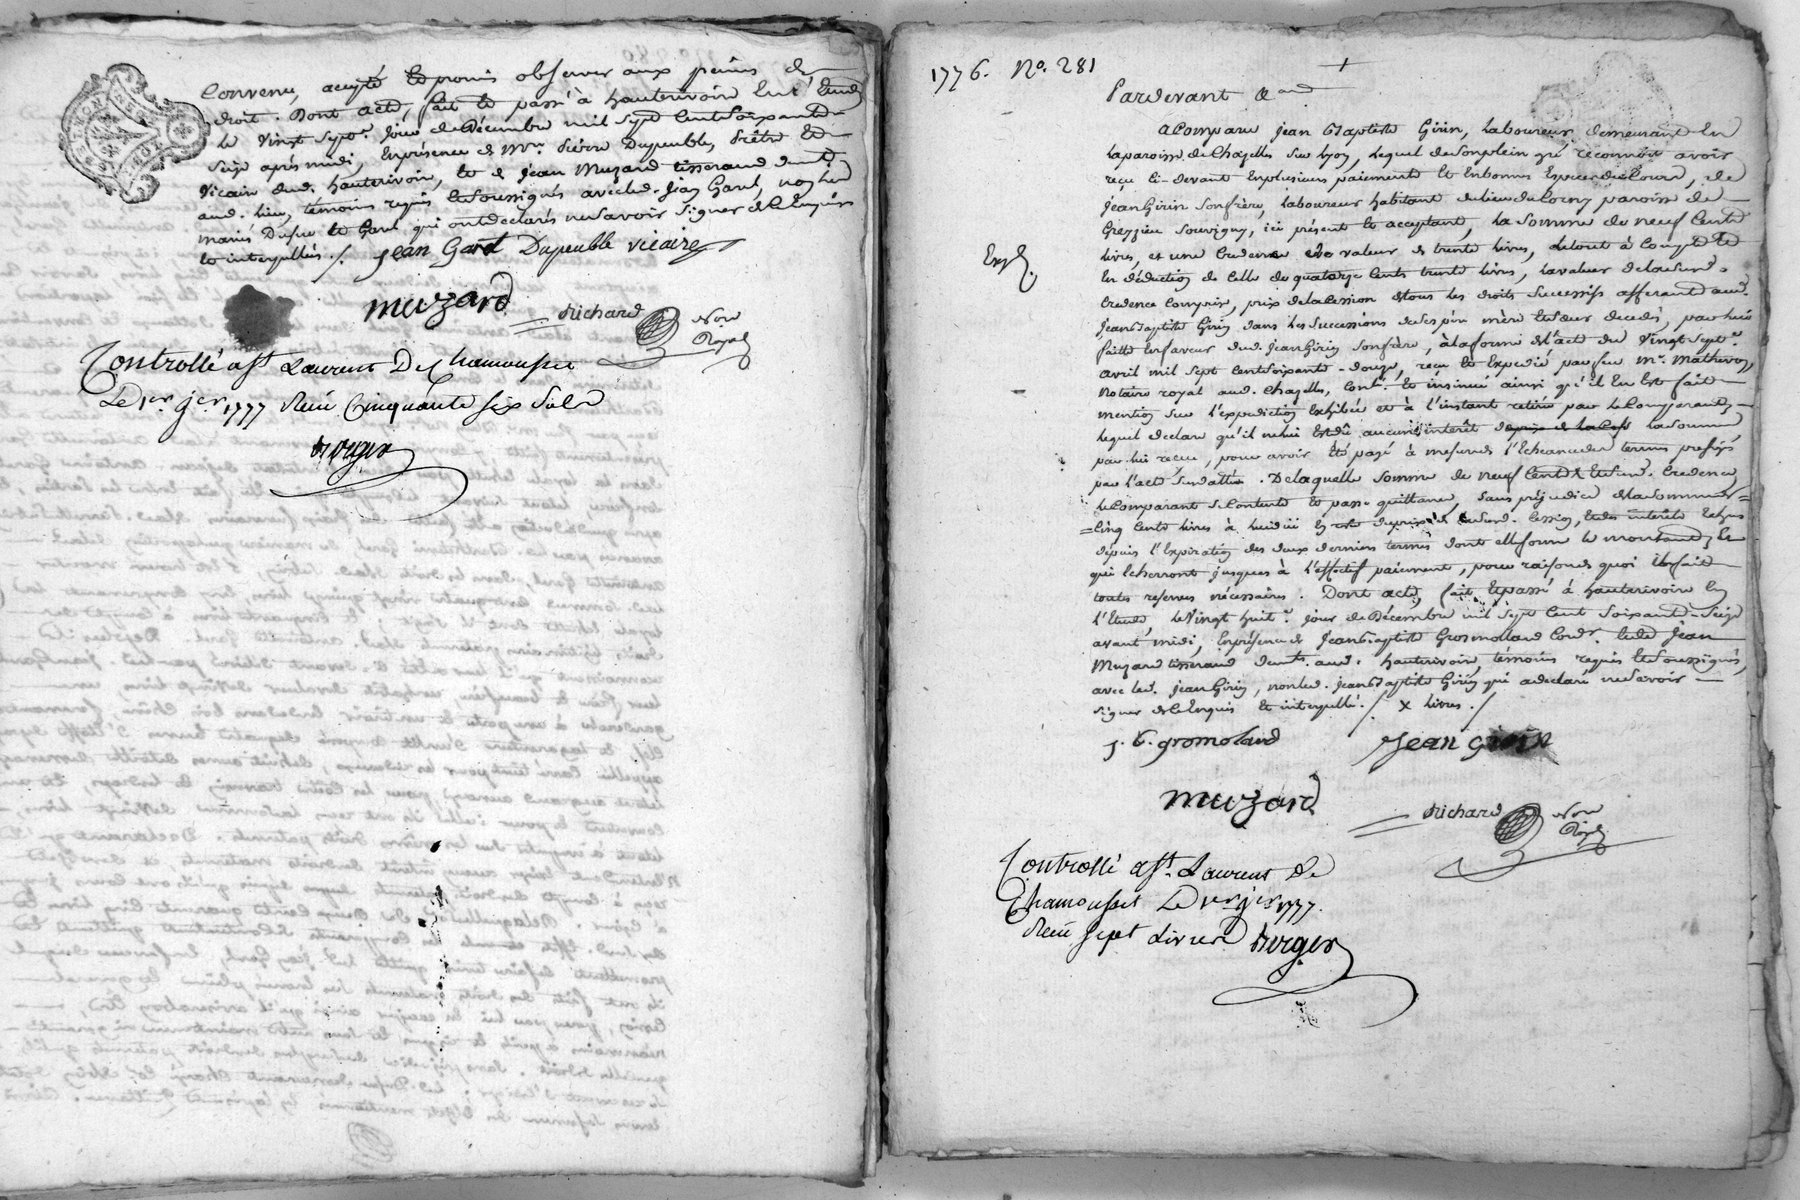 convenu, accepté et promis observer aux peines de
droit. Dont acte, fait et passé à hauterivoire en l'Etude
le vingt sept.e jour de Décembre mil sept cent soixante
seize après midi, En présence de M.re Pierre Dupeuble, Prêtre et
Vicaire dud. hauterivoire, et de Jean Muzard tisserand dem.t
aud. lieu, témoins requis et soussignés avec led. Jean Gard, non led
mariés Dufre et Gard qui ont déclarés ne savoir signer de ce Enquis
et interpellés ./. jean Gard Dupeuble vicaire
muzard
Richard Not.re
Royal
Controllé a St Laurent De Chamousset
Le 1.er j.er 1777 Reçu Cinquante six sols
Berger
1776. No. 281
Pardevant &.
a Comparu Jean Baptiste Girin, laboureur demeurant en
la paroisse de Chazelles sur Lyon, lequel de son plein gré reconnoit avoir
reçu ci-devant En plusieurs paiements et En bonnes Especes de Cours, de
Jean Girin son frère, laboureur habitant du lieu du paroisse de
Greyzieu Souvigny, ici présent et acceptant, la somme de neuf cents
livres, et une Credence de valeur de trente livres, le tout à Compte et
Exp.
En déduction de celle de quatorze cents trente livres, la valeur de lad.
Credence Compris, prix de la cession de tous les droits successifs afferant aud.
Jean Baptiste Girin dans les successions de ses père mère et sœur decedés, par lui
faitte En faveur dud. Jean Girin son frère, à la forme de l'acte du vingt sept.e
avril mil sept cent soixante-douze, reçu et Expedié par feu M.e Mathevon,
Notaire royal aud. Chazelles, Cont.lé et insinué ainsi qu'il En Est fait
mention sur l'expedition Exhibée et à l'instant retirée par le Comparant,
lequel declare qu'il ne lui Est dû aucun interêt de la somme
par lui recue, pour avoir Eté payé à mesure de l'Echeance des termes prefixés
par l'acte susdatté. De laquelle somme de neuf Cents X et de lad. Credence
le Comparant se Contente et passe quittance, sans préjudice de la somme de
Cinq Cents livres à lui düe de lad. Cession, et des interêts Echus
depuis l'Expiration des deux derniers termes dont elle forme le montant, Et
qui Echerront jusques à l'effectif paiement, pour raisons de quoi il fait
toutes reserves nécessaires. Dont acte, fait et passé à hauterivoire En
l'Etude, le Vingt huit.e jour de Décembre mil sept cent soixante-seize
avant midi, En présence de Jean Baptiste Grosmolland Cord.r et de Jean
Muzard tisserand dem.t aud. hauterivoire, témoins requis et soussignés,
avec led. Jean Girin, non led. Jean Baptiste Girin qui a declaré ne savoir
signer de ce Enquis et interpellé. / X livres. /
j. b. gromoland jean girin
muzard
Richard Not.re
Royal
Controllé a St. Laurent De
Chamousset Le 1.er j.er 1777.
Reçu sept Livres Berger